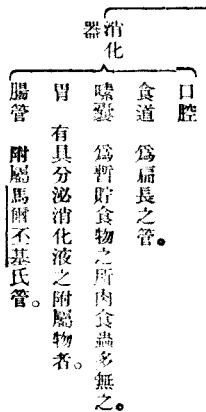 消化器
口腔
食道 為扁長之管。
嗉囊 為暫貯食物之所肉食蟲多無之。
胃 有具分泌消化液之附屬物者。
腸管 附屬馬爾丕基氏管。